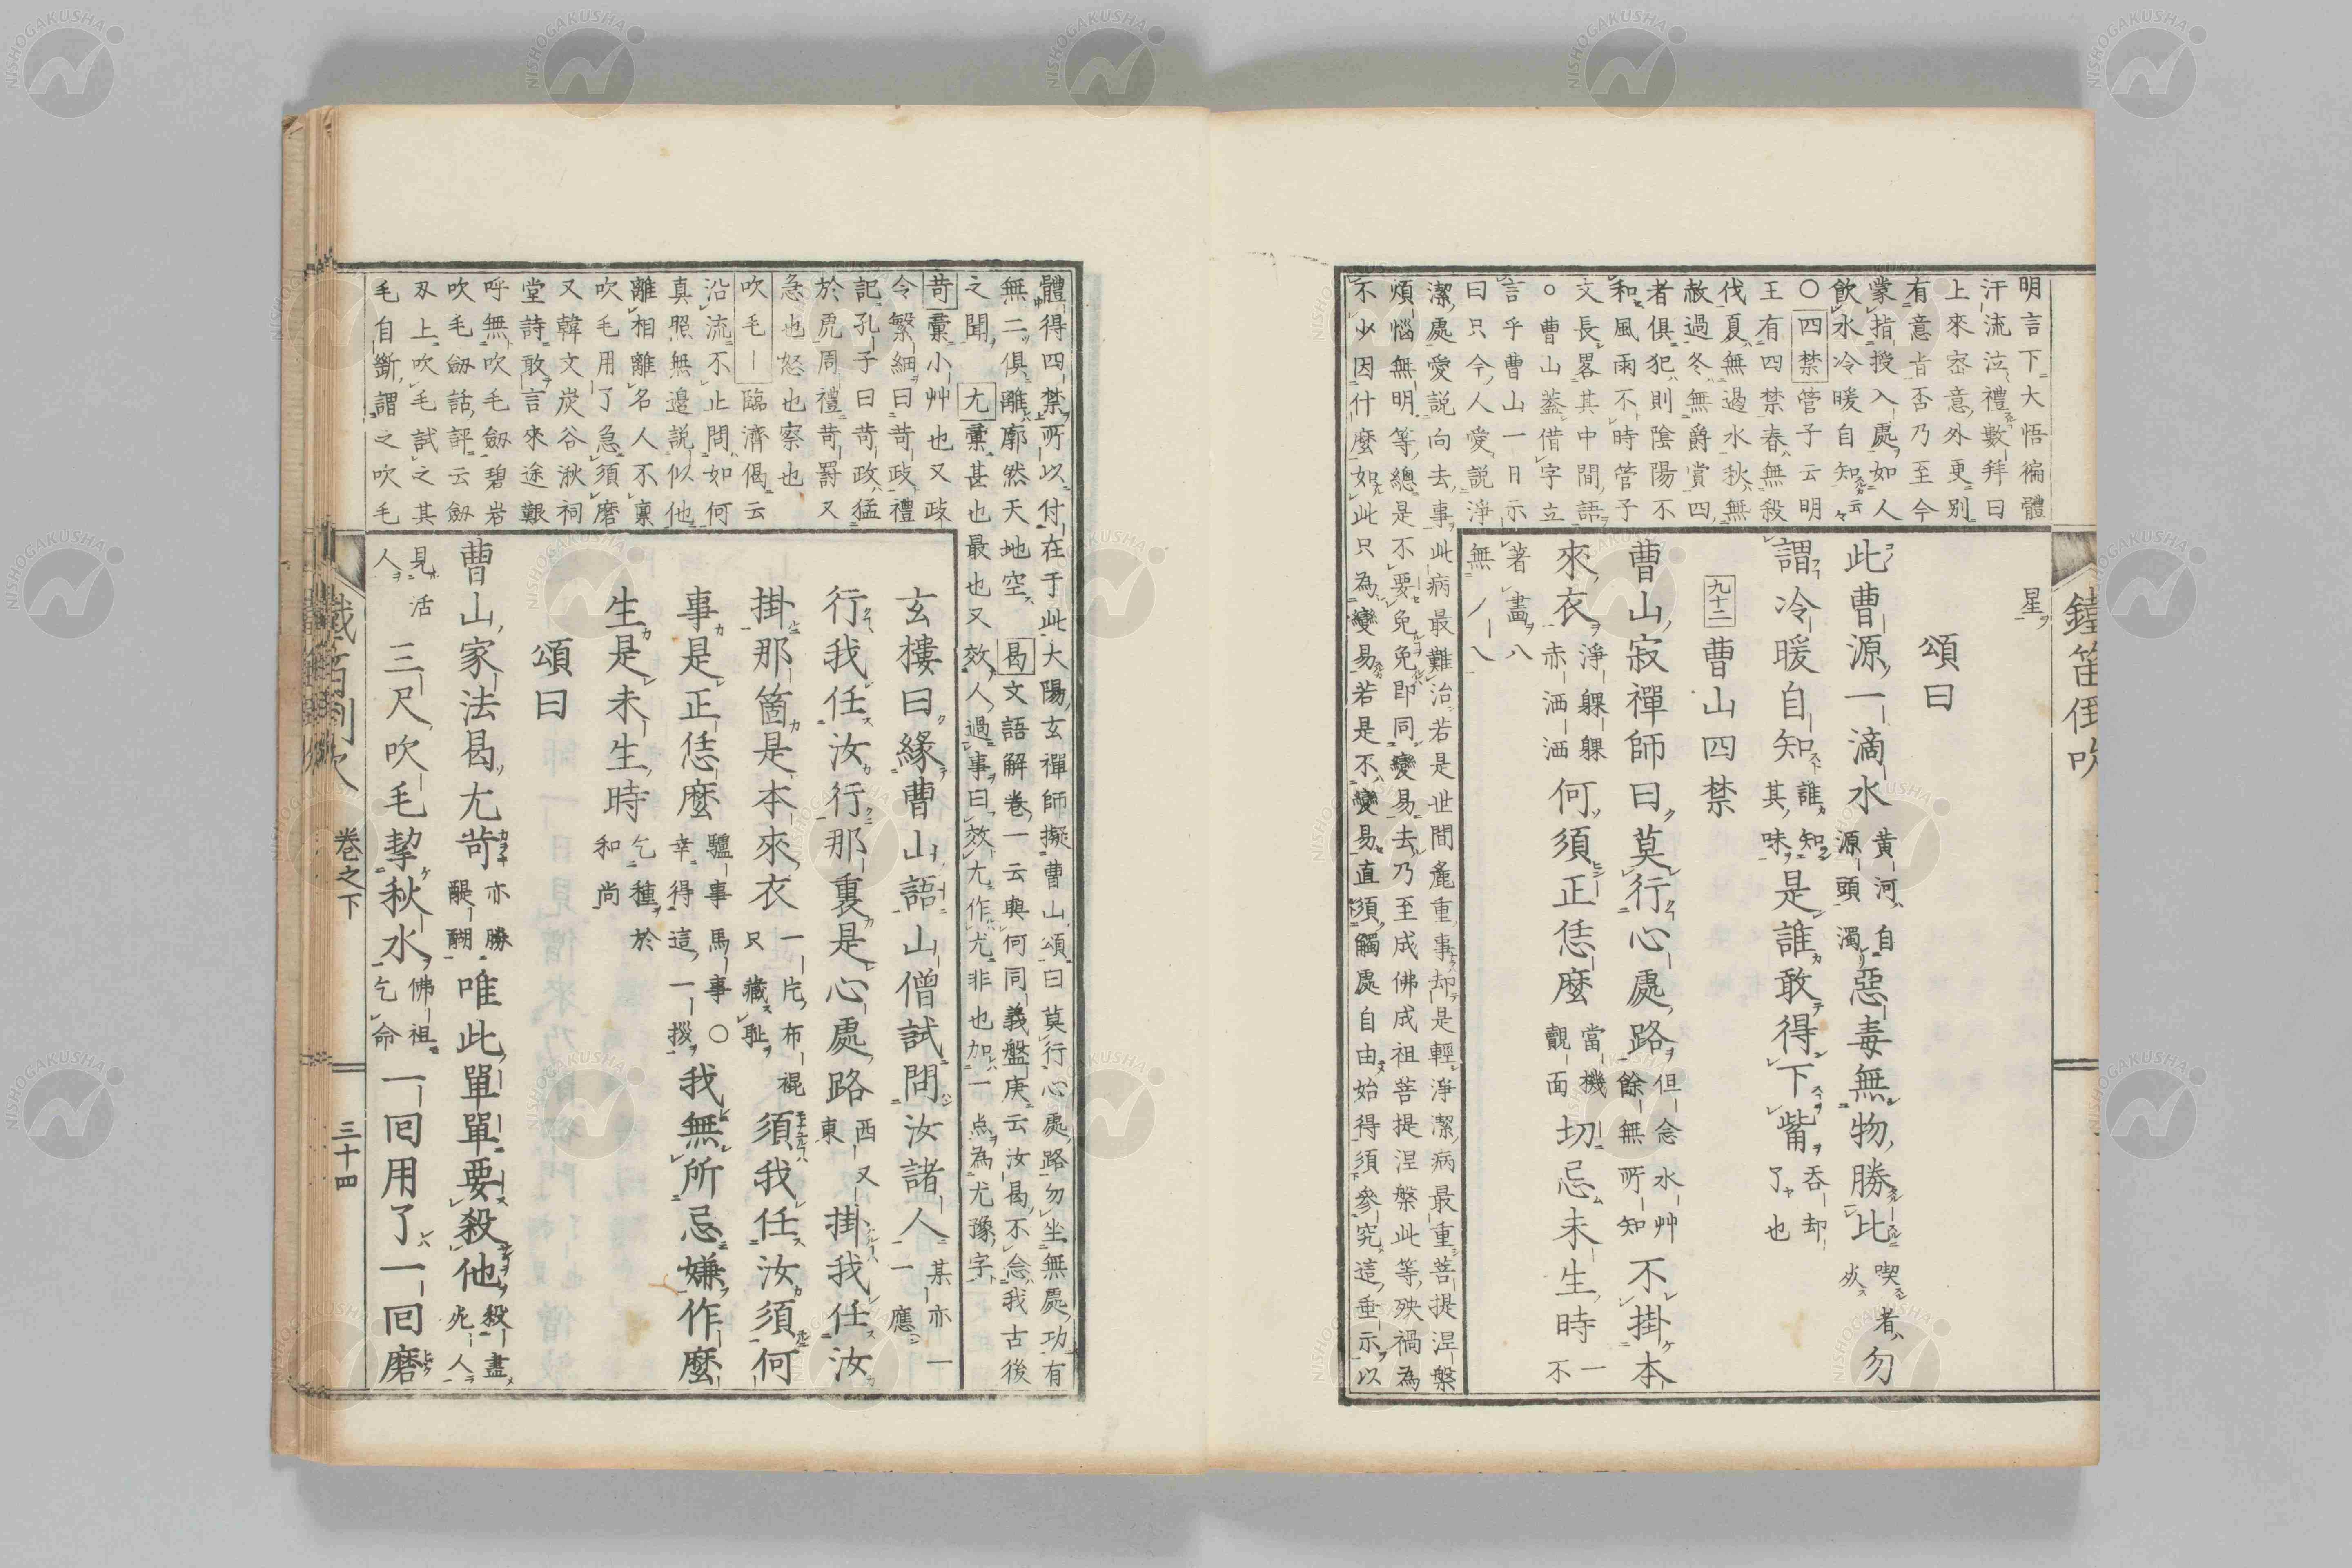 明言下大悟徧體
汗流泣禮數拜曰
上來密意外更別
有意旨否乃至今
蒙指授入處如人
飲水冷暖自知云々
○四禁管子云明
王有四禁春無殺
伐夏無遏水秋無
赦過冬無爵賞四
者俱犯則陰陽不
和風雨不時管子
文長畧其中間語
○曹山蓋借字立
言乎曹山一日示
曰只今人愛說淨
潔處愛說向去事此病最難治若是世間麁重事却是輕淨潔病最重菩提涅槃
煩惱無明等總是不要免免即同變易去乃至成佛成祖菩提涅槃此等殃禍為
不少因什麼如此只為變易若是不變易直須觸處自由始得須參究這垂示以
鐵笛倒吹
星
頌曰
此曹源一滴水黃河自源頭濁惡毒無物勝比喫者勿
謂冷暖自知誰知其味是誰敢得下觜吞却了也
九十二曹山四禁
曹山寂禪師曰莫行心處路但念水艸餘無所知不掛本
來衣淨躶躶赤洒洒何須正恁麼當機覿面切忌未生時一不
著畫八
無ノ八
體得四禁所以付在于此大陽玄禪師擬曹山頌曰莫行心處路勿坐無處功有
無二俱離廓然天地空曷文語解卷一云與何同義盤庚云汝曷不念我古後
之聞尤彙甚也最也又效人過事曰效尤作尤非也加一点為尤豫字
苛彙小艸也又政
令繁細曰苛政禮
記孔子曰苛政猛
於虎周禮苛罸又
急也怒也察也
吹毛—臨濟偈云
沿流不止問如何
真照無邊說似他
離相離名人不稟
吹毛用了急須磨
又韓文炭谷湫祠
堂詩敢言來途艱
呼無吹毛劒碧岩
吹毛劒話評云劒
刄上吹毛試之其
毛自斷謂之吹毛
玄樓曰緣曹山語山僧試問汝諸人某亦一一應
行我任汝行那裏是心處路西又東掛我任汝
掛那箇是本來衣一片布裩只藏耻須我任汝須何
事是正恁麼驢事馬事○幸得這一拶我無所忌嫌作麼
生是未生時乞種於和尚
頌曰
曹山家法曷尤苛亦勝醍醐唯此單單要殺他殺盡死人
見活人三尺吹毛挈秋水佛祖乞命一回用了一回磨
鐵笛倒吹 卷之下 三十四